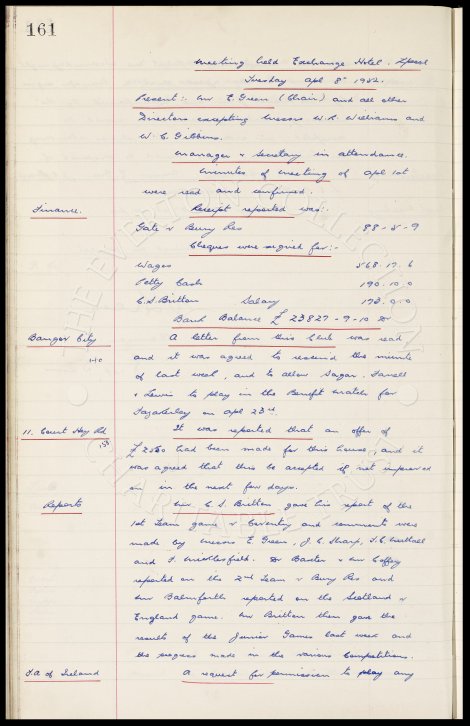 161
Meeting held Exchange Hotel, Lpool
Tuesday Apl 8th 1952.
Present:- Mr E. Green (Chair) and all other
Directors excepting Messrs W. R. Williams and
W. C. Gibbins.
Manager & Secretary in attendance.
Minutes of Meeting of Apl 1st
were read and confirmed.
Finance.
Receipt reported was:-
Gate v Bury Res 88-8-9
Cheques were signed for:-
Wages 568.17.6
Petty Cash 190.10.0
C. S. Britton Salary
Bank Balance £23827-9-10 Dr
Bangor City
A letter from this Club was read
and it was agreed to rescind the minute
of last week, and to allow Sagar, Farrell
& Lewis to play in the Benefit match for
Fazackerley on Apl 23rd.
11. Court Hey Rd
158
It was reported that an offer of
had been made for this house, and it
was agreed that this be accepted if not improved
on in the next few days.
Reports
Mr. C. S. Britton gave his report of the
1st Team game v Coventry and comments were
made by Messrs E. Green, J. C. Sharp,
and F. Micklesfield. Dr Baxter & Mr Coffey
reported on the 2nd Team v Bury Res and
Mr Balmforth reported on the Scotland v
England game. Mr Britton then gave the
results of the Junior Games last week and
the progress made in the various Competitions.
F.A. of Ireland
A request for permission to play any
THE EVERTON COLLECTION
CHARITABLE TRUST